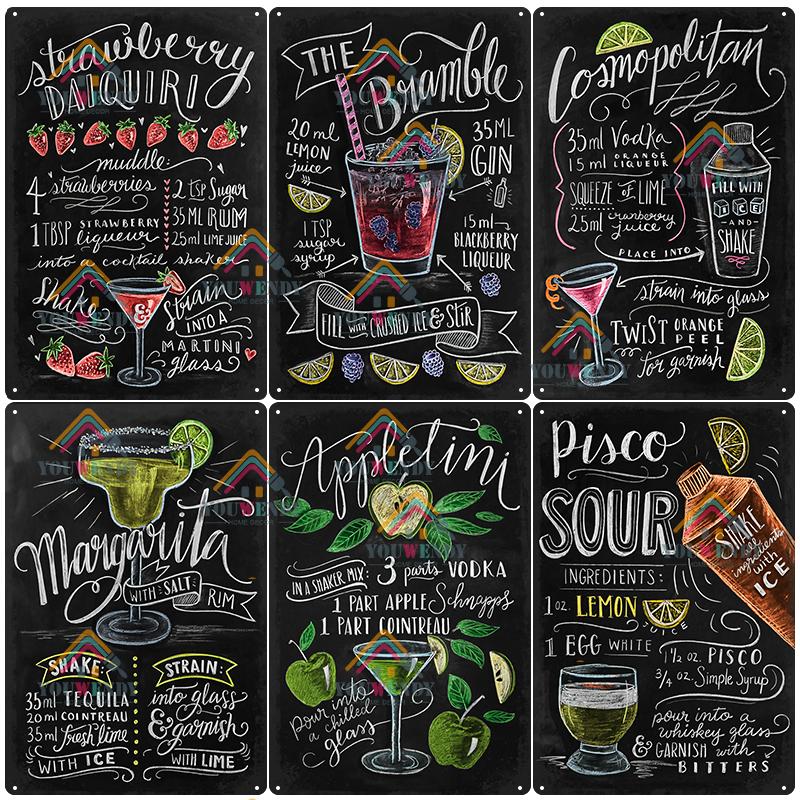 strawberry
DAIQUIRI
muddle:
4 strawberries
1 TBSP STRAWBERRY liqueur
2 TSP Sugar
35 ML RUM
25ml LIME JUICE
into a cocktail shaker
Shake
&
Strain
INTO A
MARTINI
glass
THE
Bramble
20 ml
LEMON
juice
35ML
GIN
1 TSP
sugar
syrup
15ml
BLACKBERRY
LIQUEUR
FILL WITH CRUSHED ICE & StiR
Cosmopolitan
35ml Vodka
15 ml ORANGE LIQUEUR
SQUEEZE OF LIME
25ml cranberry juice
PLACE INTO
FILL WITH
ICE
-AND-
SHAKE
strain into glass
TWIST ORANGE PEEL
for garnish
Margarita
WITH SALT RIM
SHAKE:
35ml TEQUILA
20ml COINTREAU
35ml fresh lime
WITH ICE
STRAIN:
into glass
& garnish
WITH LIME
Appletini
IN A SHAKER MIX: 3 parts VODKA
1 PART APPLE Schnapps
1 PART COINTREAU
pour into
a chilled
glass
Pisco
SOUR
SHAKE
all
ingredients
with
ICE
INGREDIENTS:
1 oz. LEMON JUICE
1 EGG WHITE
1 1/2 oz. PISCO
3/4 oz. Simple Syrup
pour into a
whiskey glass
& GARNISH with
BITTERS
YOUWENDY
HOME DECOR